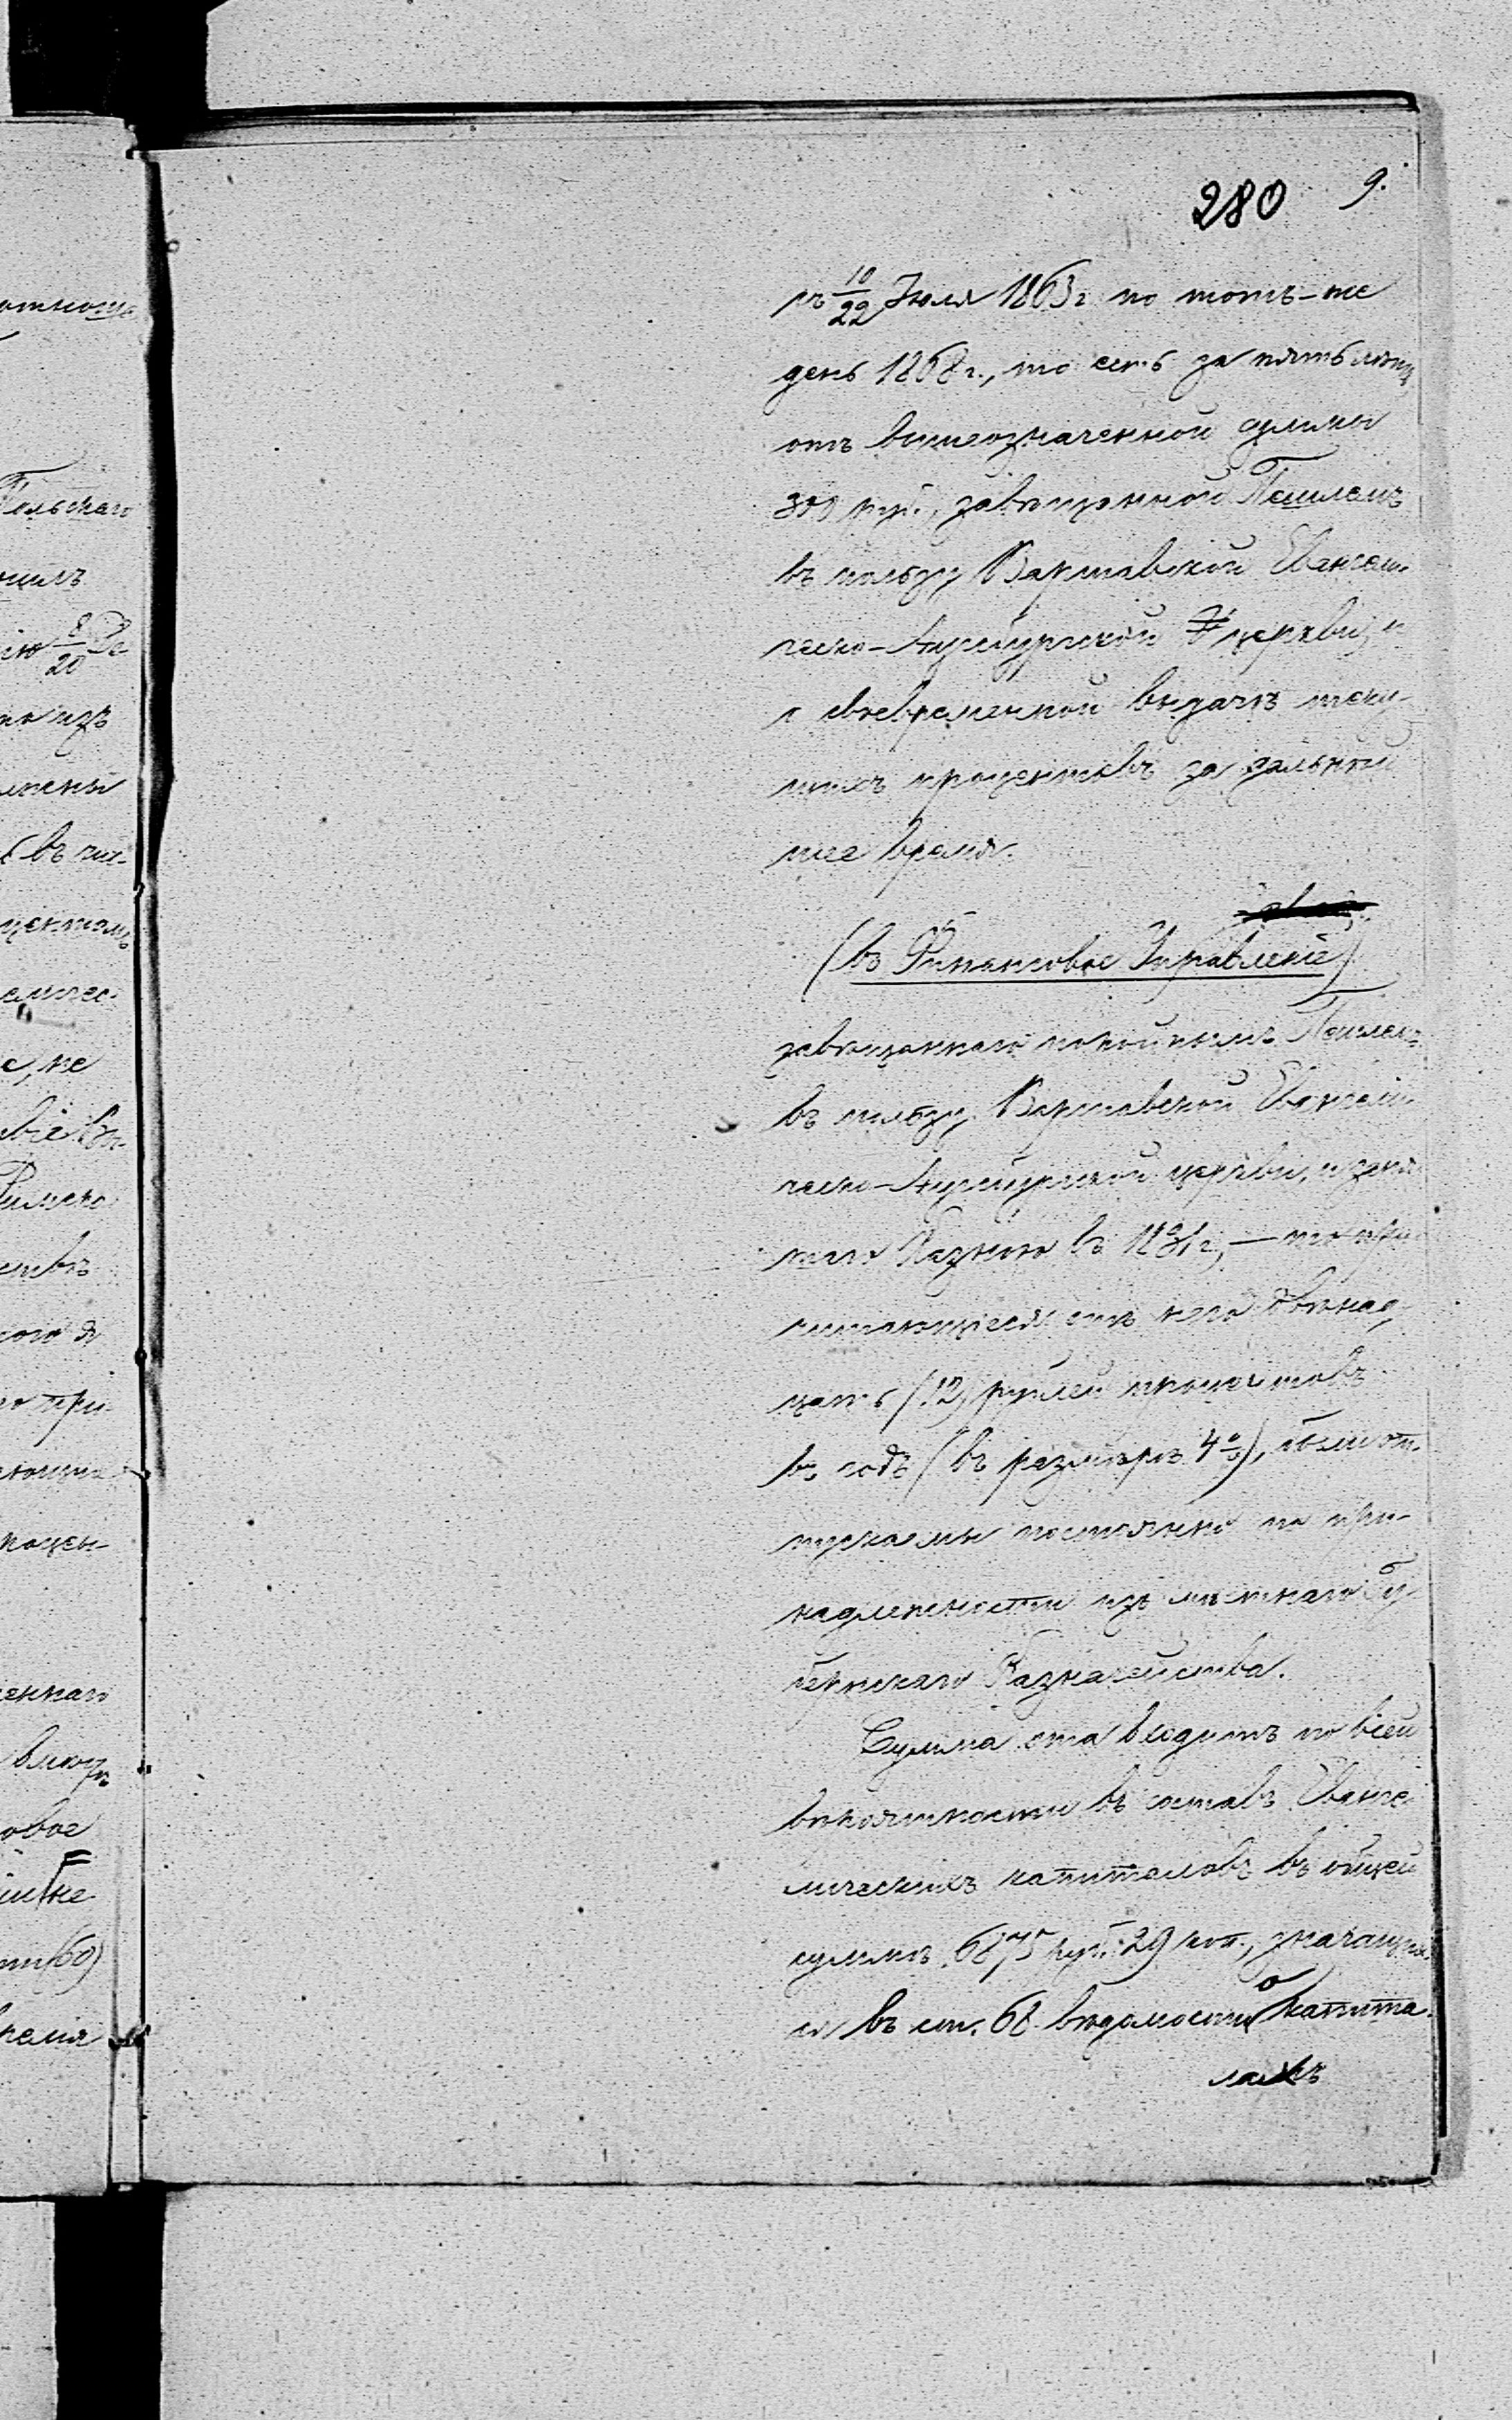 280 9.
съ 10/22 Іюля 1863 г. по тотъ-же
день 1868 г., то есть за пять лѣтъ,
отъ вышеозначенной суммы
300 руб., завѣщанной
въ пользу Варшавской Евангели-
ческо-Аугсбургской церкви, и
о своевременной выдачѣ теку-
щихъ процентовъ за дальнѣй-
шее время.
(въ Финансовое Управленіе)
завѣщаннаго покойнымъ
въ пользу Варшавской Евангели-
ческо-Аугсбургской церкви, и
Казною въ — то при
читающіеся отъ него двѣнад-
цать (12) рублей процентовъ
въ годъ (въ размѣрѣ 4%), были от-
пускаемы постоянно по при-
надлежности изъ мѣстнаго Гу-
бернскаго Казначейства.
Сумма эта входитъ по всей
вѣроятности въ составъ Еванге-
лическихъ капиталовъ въ общей
суммѣ 6875 руб. 29 коп., значащей-
ся въ ст. 68 вѣдомости о капита-
лахъ
отноше
Польскаго
8/20 Де
изъ
въ чис-
е, не
Римско
го при
процен-
еннаго
овое
(60)
время